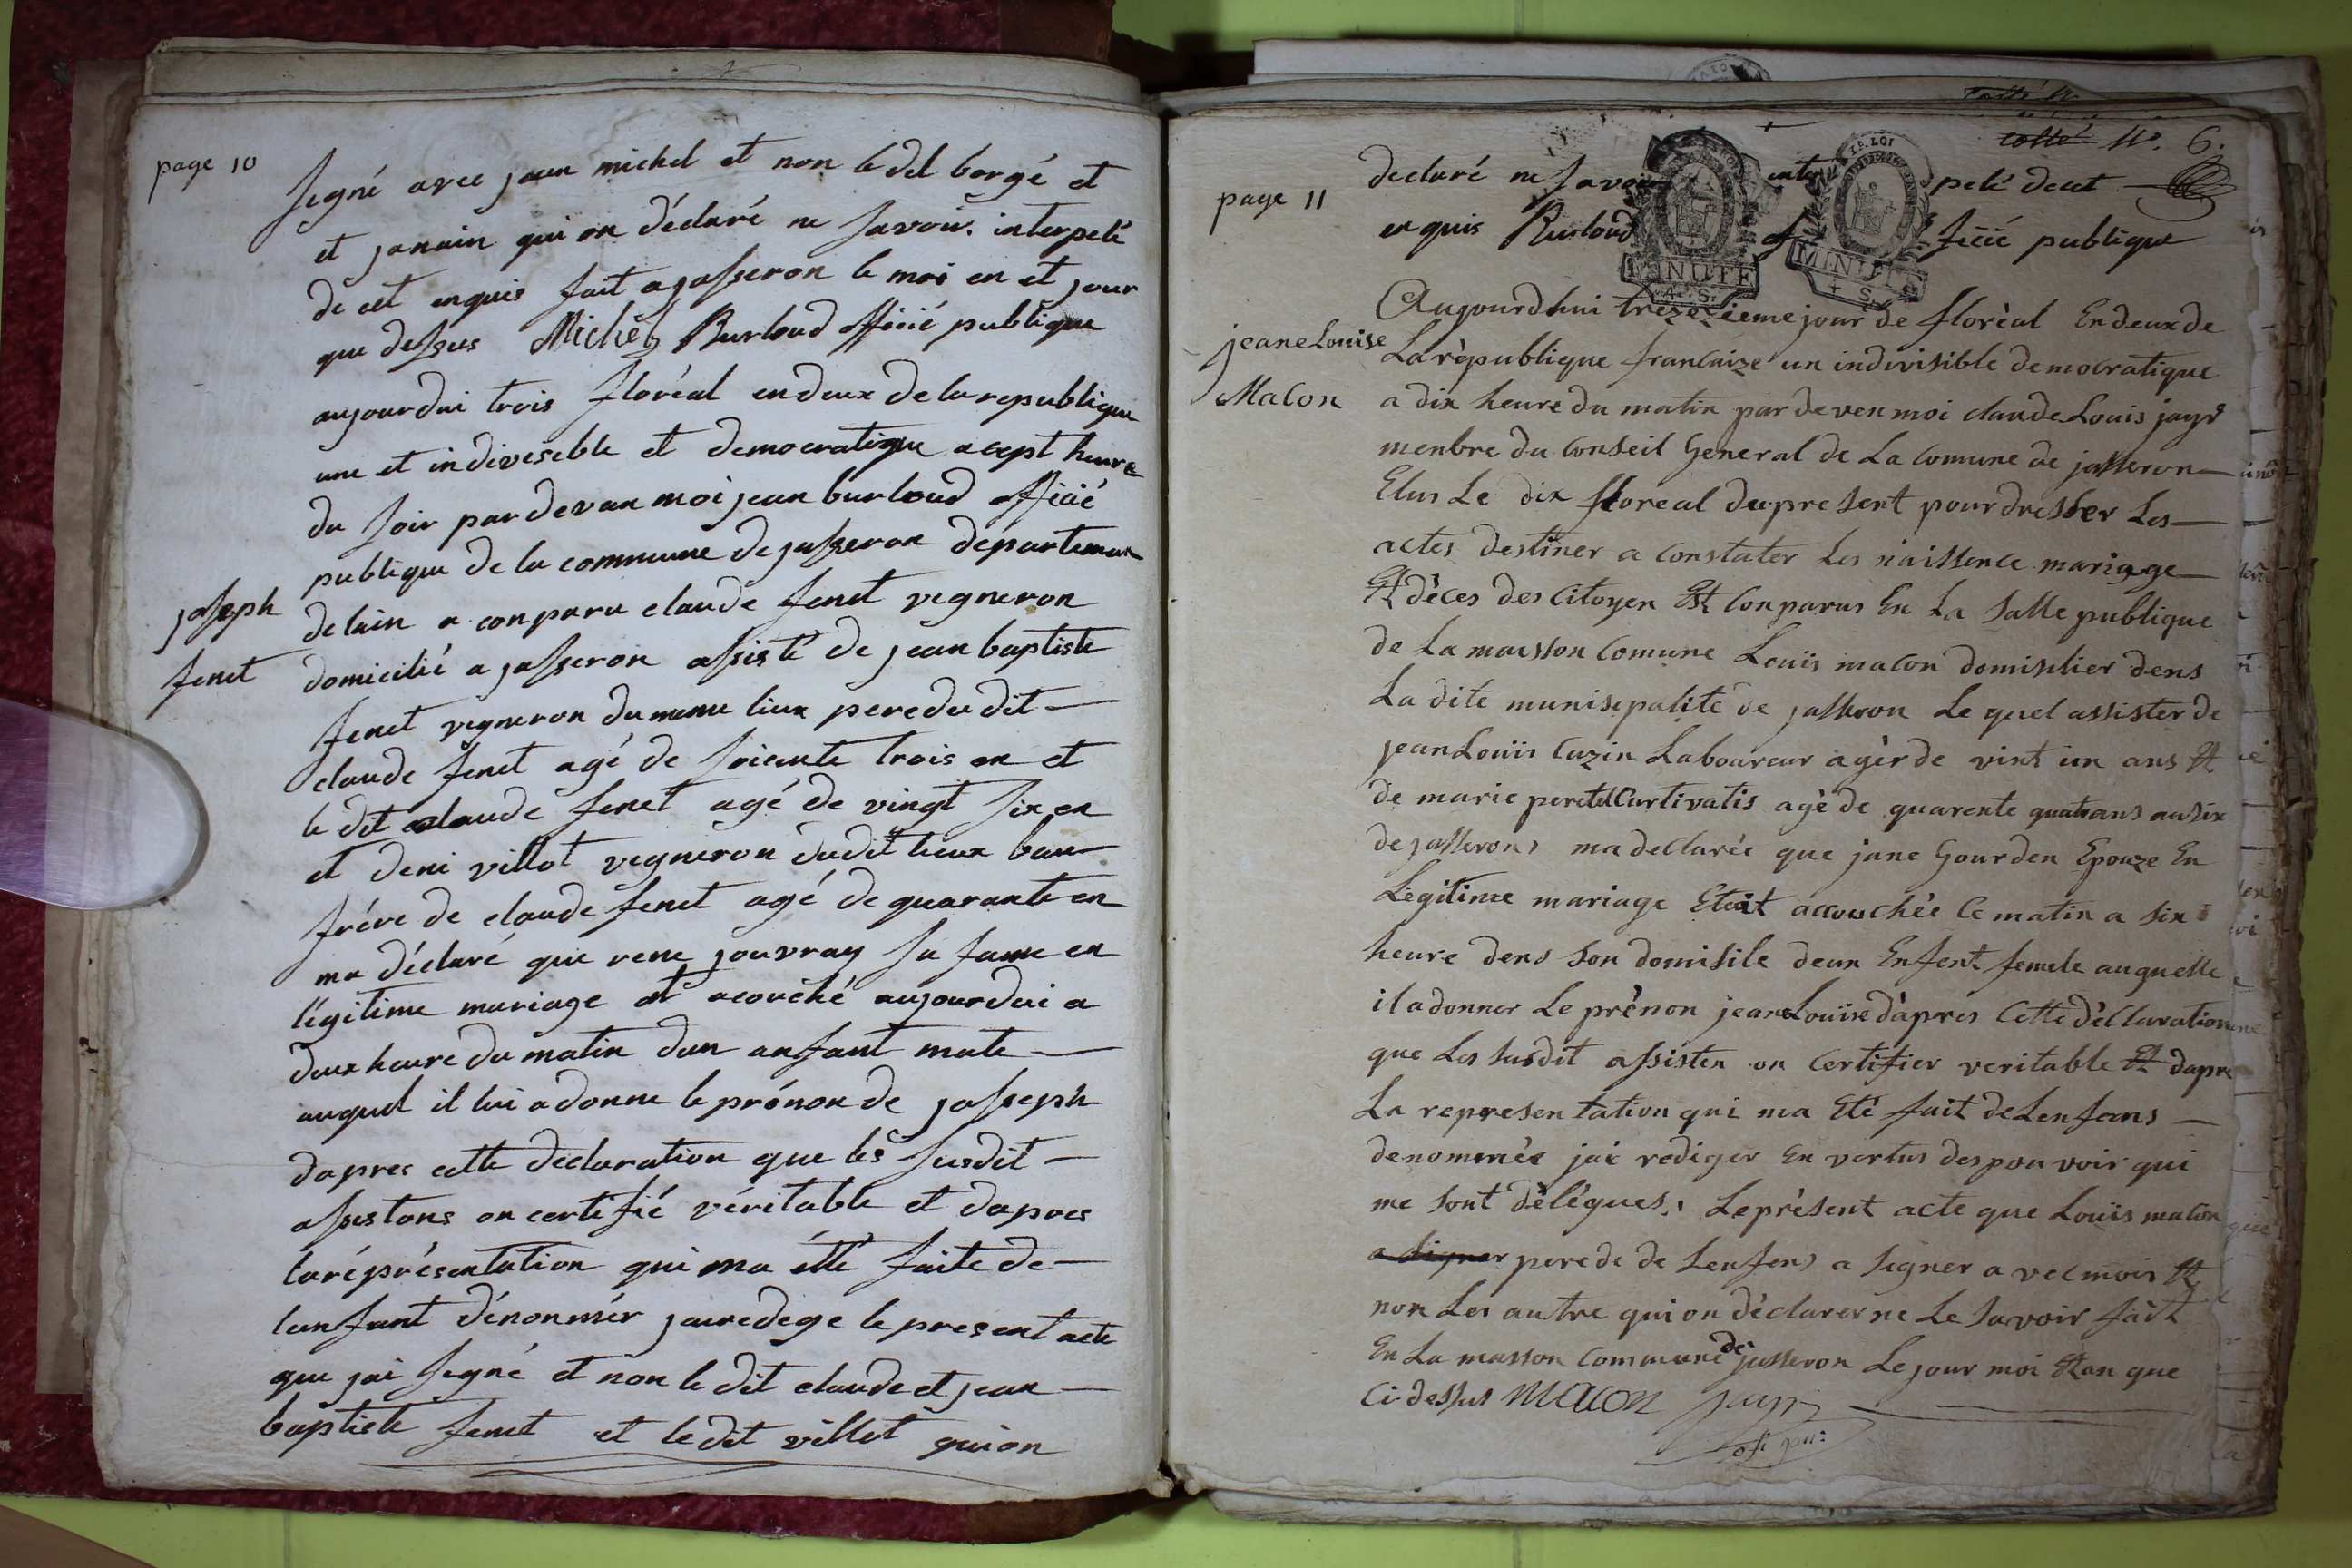 page 10
signé avec jean michel et non ledit borgé et
et janain qui on déclaré ne savoir. interpelé
de cet enquis fait a jasseron le moi en et jour
que dessus Michel Burloud officié publique
aujourdui trois floréal en deux de la republique
une et indiveseble et democratique a cept heure
du soir pardevan moi jean burloud officié
publique de la commune de jasseron departeman
joseph
fenet
delain a conparu claude fenet vegneron
domicilié a jasseron assisté de jean baptiste
fenet vegneron du meme lieux pere du dit —
claude fenet agé de soicente trois an et
le dit claude fenet agé de vingt six en
et deni villot vegneron dudit lieux bau
frére de claude fenet agé de quarante en
ma déclaré que rene jouvray sa fame en
légitime mariage et acouché aujourdui a
deux heure du matin dun anfant mate —
auquel il lui a donne le prénon de josseph
daprec cette declaration que les susdit —
assistans on certifié véritable et dapres
la répré​sentation qui ma été faite de —
lanfant dénonmér jairedege le present acte
que jai segné et non le dit claude et jean —
baptiste fenet et ledit villot qui on
cotté No. 6.
page 11
declaré ne savoir inter pelé de cet —
enquis Burloud of ficié publique
jeane Louise
Macon
Aujourdhui trèzeziemejour de florèal En deux de
La rèpublique francaize un indivisible democratique
a dix heure du matin par deven moi claude Louis jayr
menbre du Conseil General de La Comune de jasseron —
Elus Le dix floreal du present pour dresser Les —
actes destiner a Constater Les naissence mariage —
Et dèces des Citoyen Est Conparus En La Salle publique
de La maisson Comune Louis macon domisilier dens
La dite munisepalité de jasseron Le quel assister de
jean Louïs Cuzin Laboureur agèr de vint un ans Et
de marie peretel Curtivatis agè de quarente quatrans au six
de jasserons ma decllarée que jane Gourden Epouze En
Lègitime mariage Etoit accouchée ce matin a six
heure dens son domisile deun Enfent femele auquelle
il a donner Le prênon jeane Louïse dàprés Cette dècllaration
que Les susdit assisten on Certifier veritable Et dapre
La representation qui ma Eté fait de Lenfans —
denommée jai rediger En vertus des pouvoir qui
me sont délégues, Le prèsent acte que Louïs macon
a signer pere de de Lenfens a signer a vec mois Et
non Les autre qui on déclarer ne Le savoir fait
En La masson Commune de jasseron Le jour moi Et an que
Ci dessus Macon jayr
ofi pu:
LA LOI
MINUTE
MINUTE